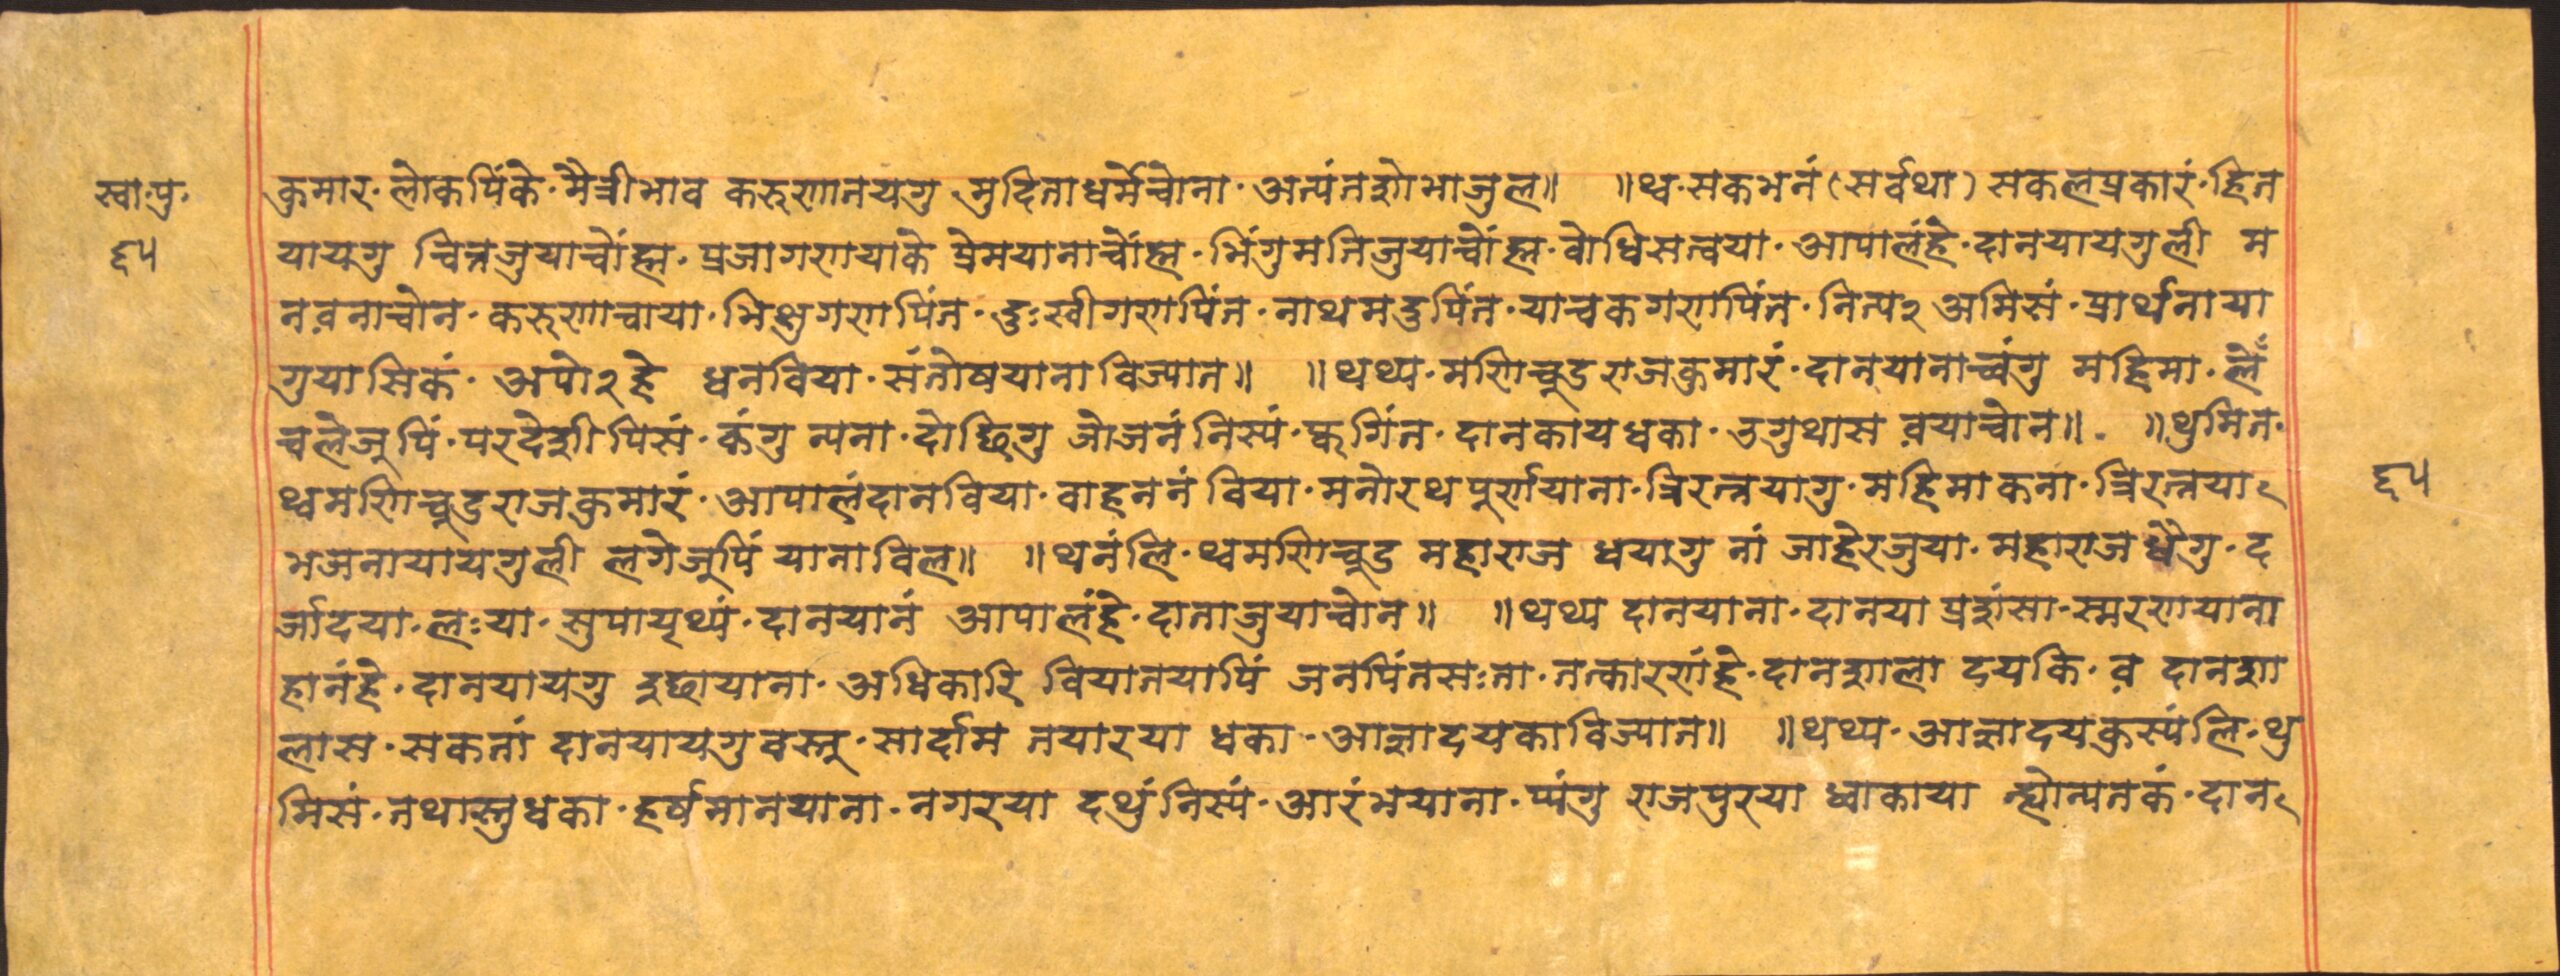 स्वा·पु·
६५
कुमार· लोकपिंके· मैत्रीभाव करुणातयगु मुदिताधर्मेचोना· अत्यंतशोभाजुल॥ ॥थ्व·सकभनं (सर्वथा) सकलप्रकारं·हित
यायगु चित्तजुयाचोंह्म· प्रजागणयाके प्रेमयानाचोंह्म· भिंगुमतिजुयाचोंह्म· बोधिसत्वया· आपालंहे· दानयायगुली म
न वनाचोन· करुणाचाया· भिक्षुगणपिंत· दुःखीगणपिंत· नाथमदुपिंत· याचकगणपिंत· नित्य२ अमिसं· प्रार्थनाया
गुयासिकं· अपो२हे धनविया· संतोषयानाविज्यात॥ ॥थथ्य· मणिचूडराजकुमारं· दानयानाच्वंगु महिमा· लँ
चलेजूपिं· परदेशीपिसं· कंगु न्यना· दोछिगु जोजनंनिस्यं· फ्वगिंत· दानकायधका· उगुथास वयाचोन॥ ॥थुमित·
थ्वमणिचूडराजकुमारं· आपालंदानविया· वाहननं विया· मनोरथपूर्णयाना· त्रिरत्नयागु· महिमाकना· त्रिरत्नया
भजनायायगुली लगेजूपिं यानाविल॥ ॥थनंलि· थ्वमणिचूड महाराज धयागु नां जाहेरजुया· महाराज धैगु· द
र्जादया· लःया· सुपाय्थ्यं· दानयानं आपालंहे· दाताजुयाचोन॥ ॥थथ्य दानयाना· दानया प्रशंसा· स्मरणयाना
हानंहे· दानयायगु इछायाना· अधिकारि वियातयापिं जनपिंतसःता· तत्कारणंहे· दानशाला दयकि· व दानशा
लास· सकतां दानयायगु वस्तू· सार्दाम तयारया धका· आज्ञादयकाविज्यात॥ ॥थथ्य· आज्ञादयकुस्यंलि· थु
मिसं· तथास्तुधका· हर्षमानयाना· नगरया दथुंनिस्यं· आरंभयाना· प्यंगु राजपुरया ध्वाकाया न्ह्योन्यतकं· दान
६५